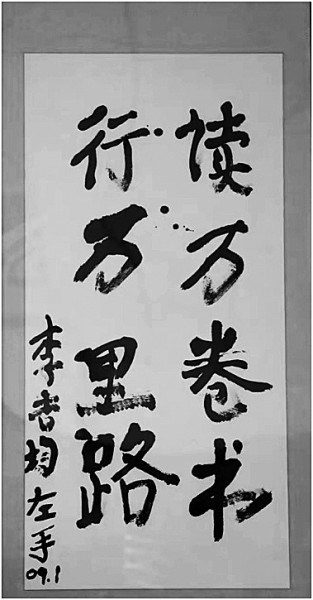 读万卷书
行万里路
李杏均左手
09.1